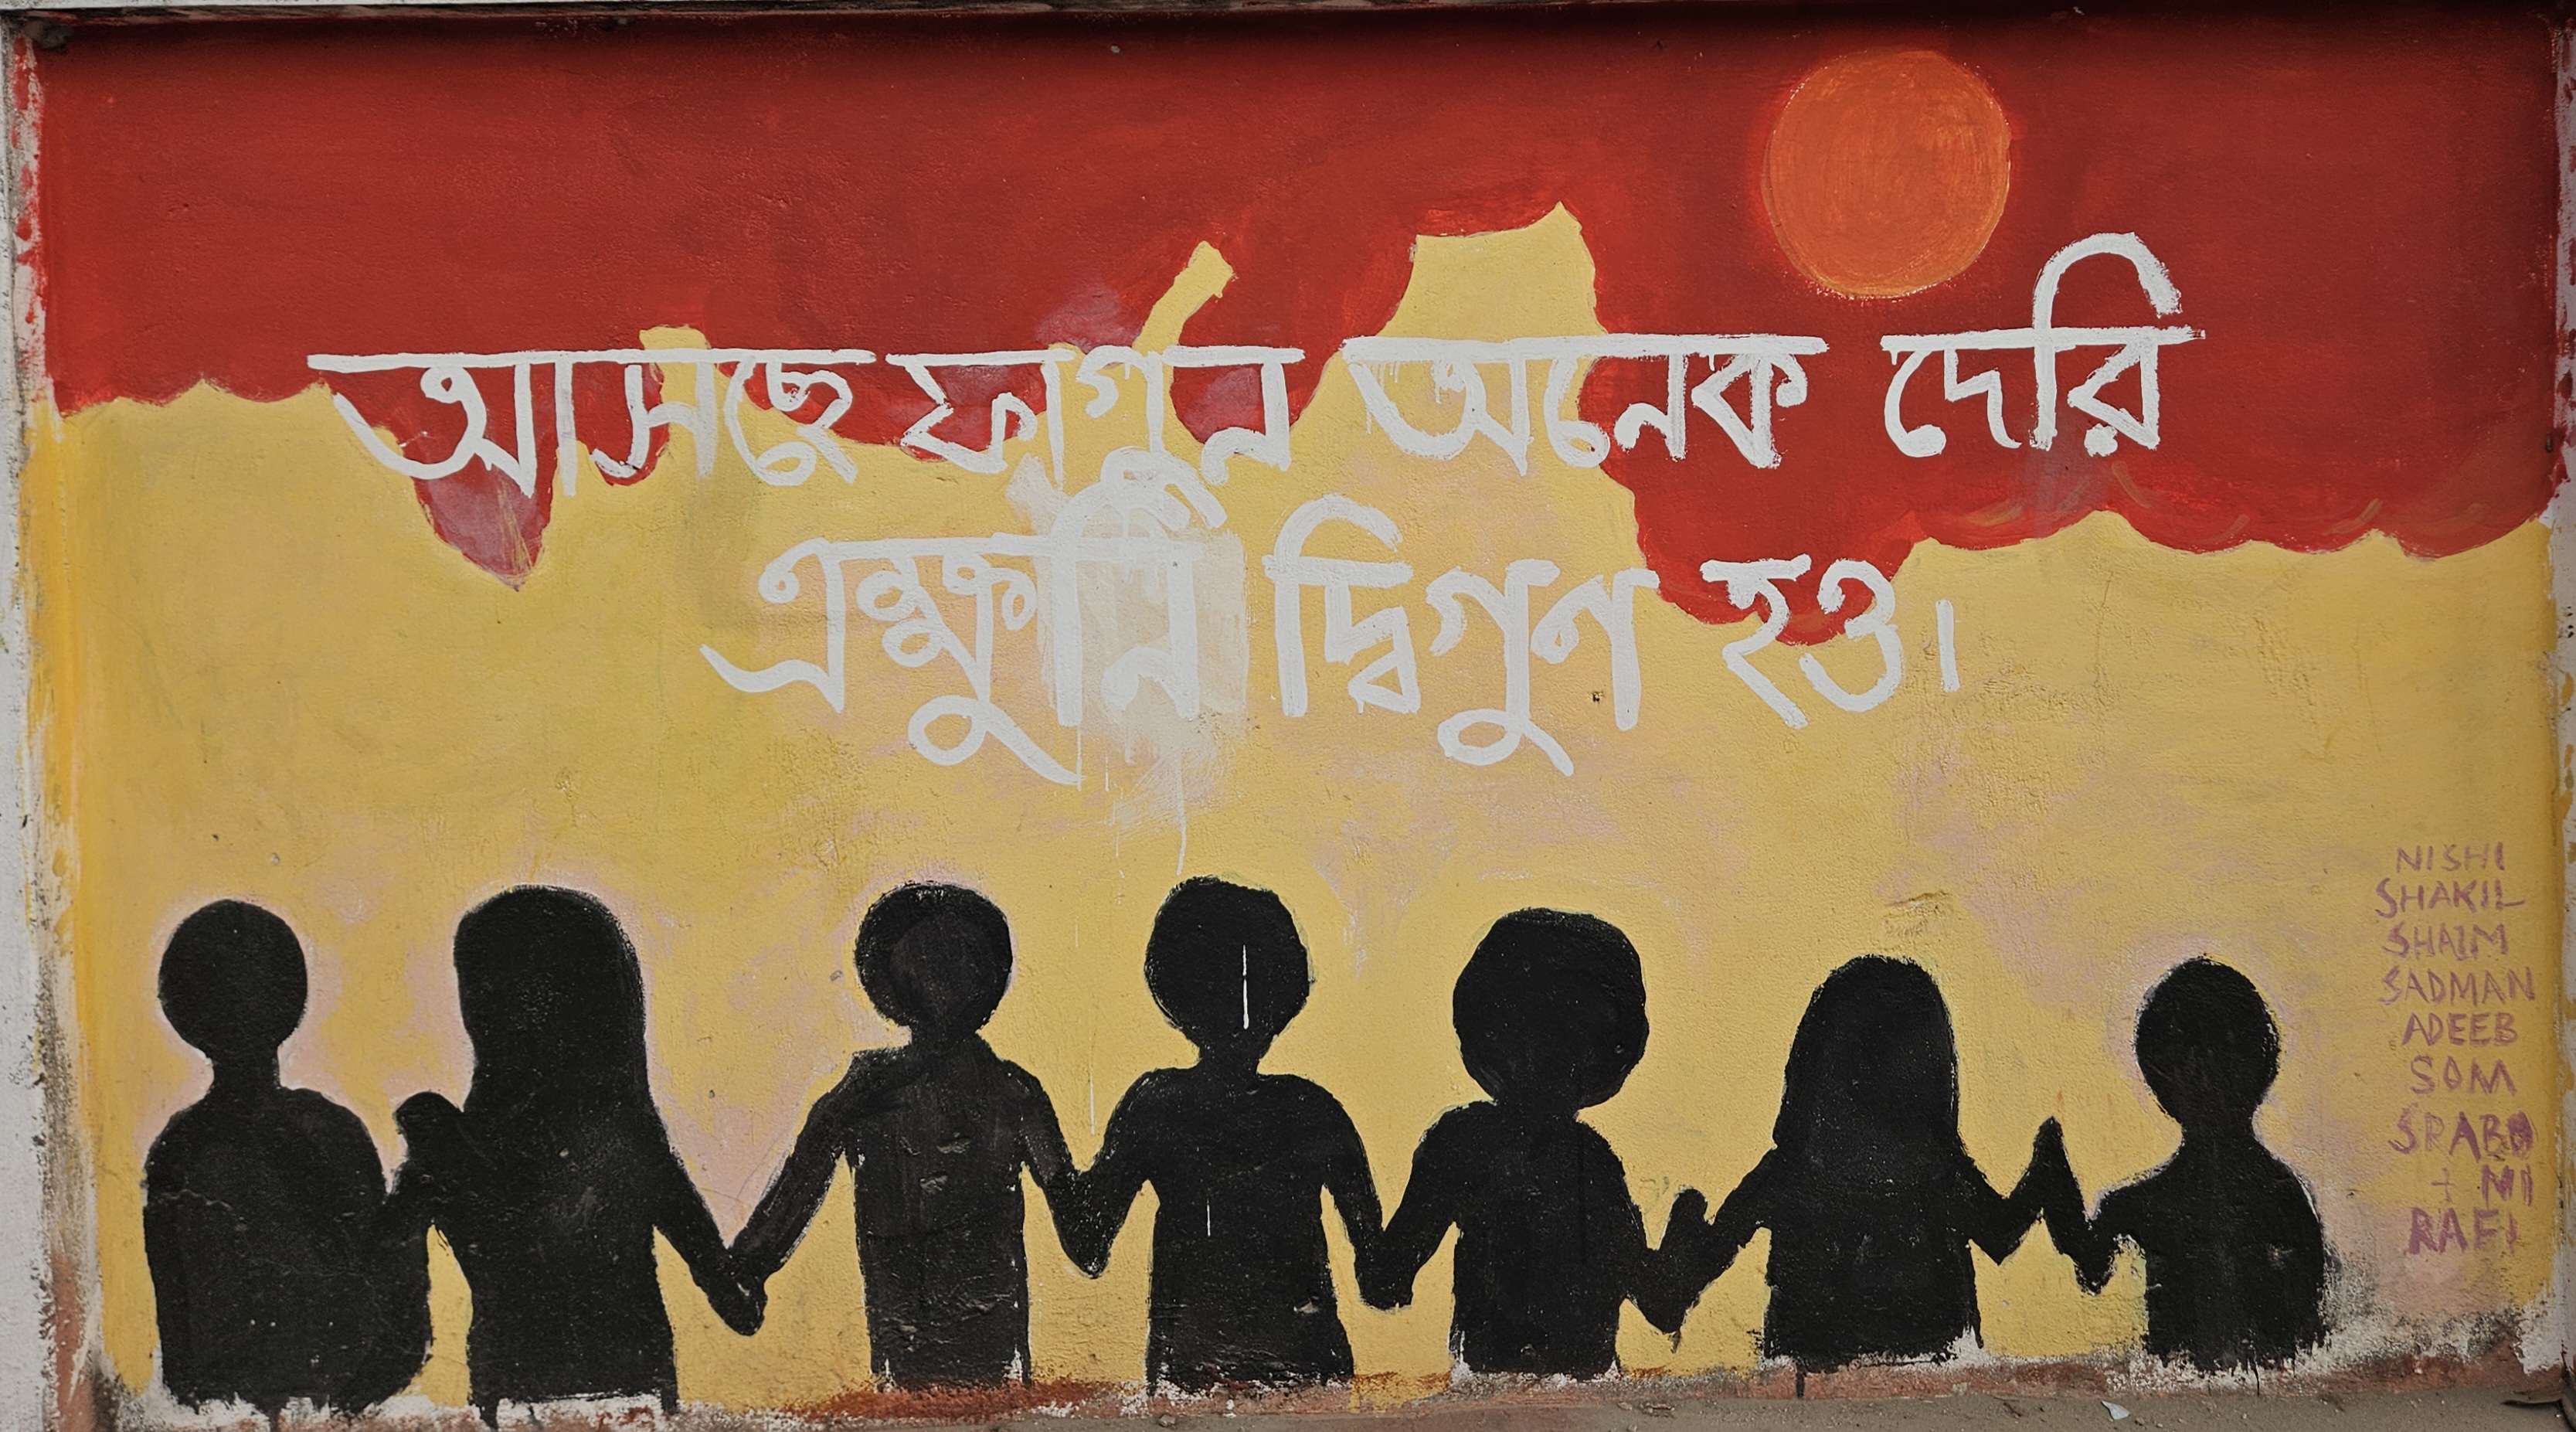 আসছে ফাগুন অনেক দেরি
এক্ষুনি দ্বিগুণ হও।
NISHI
SHAKIL
SHAIM
SADMAN
ADEEB
SOM
SRABO
+ NI
RAFI